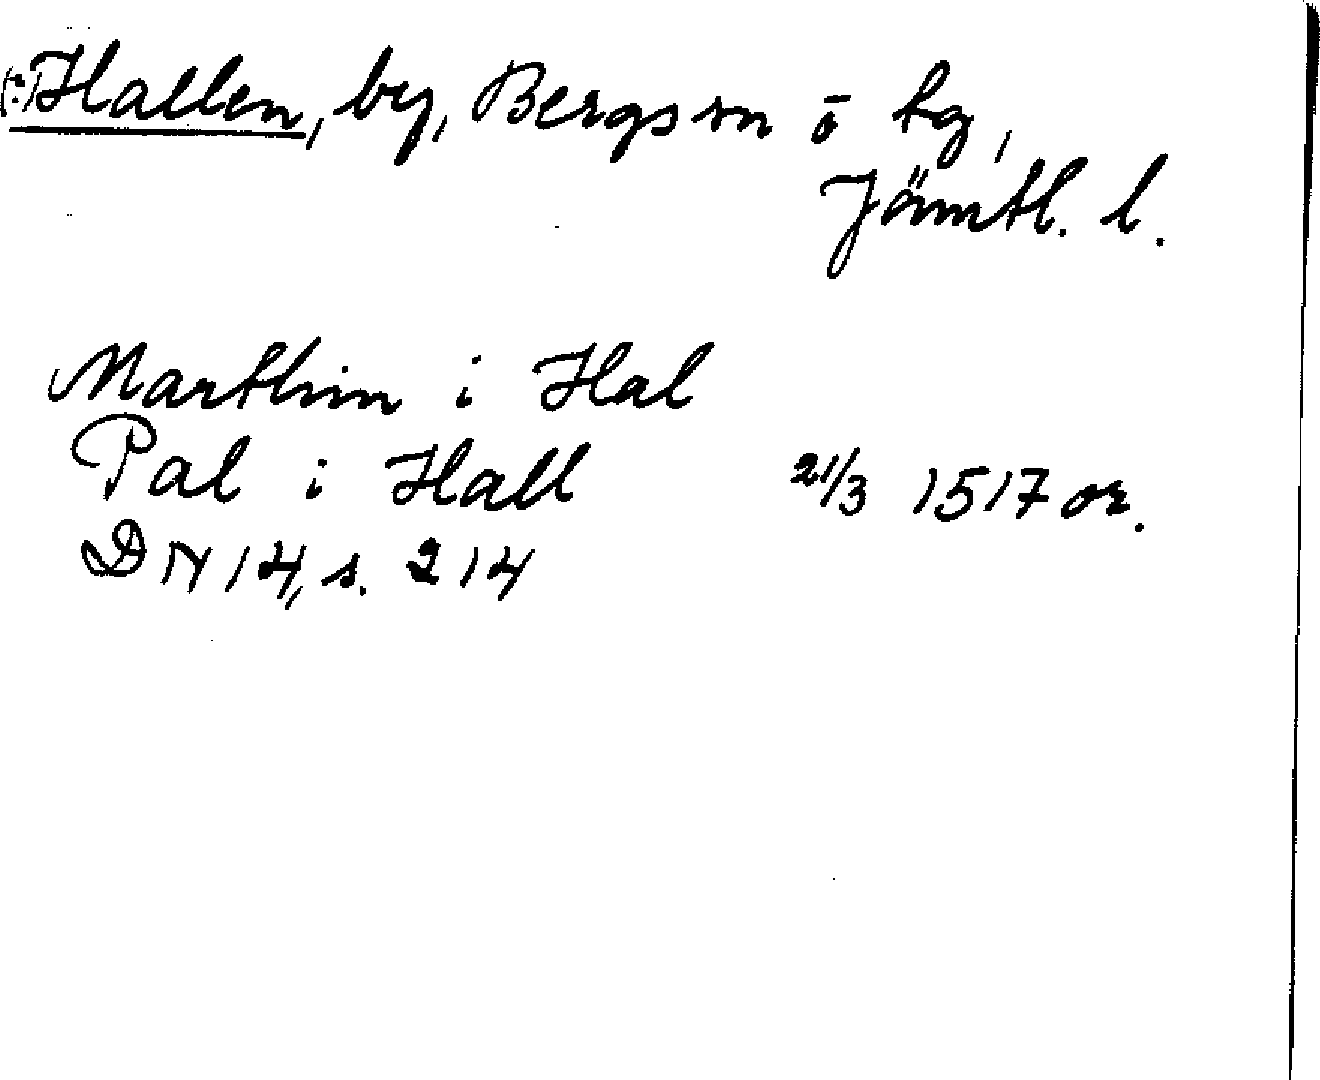 (:)Hallen, by, Bergs sn o hg,
Jämtl. l.
Marthin i Hal
Pal i Hall 21/3 1517 or.
DN 14, s. 214